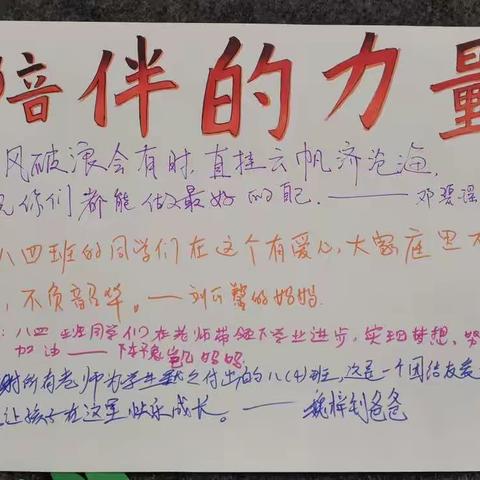 陪伴的力量
风破浪会有时,直挂云帆济沧海,
你们都能做最好的自己.——邓碧瑶
八四班的同学们在这个有爱心,大家庭里不
,不负韶华。—刘可馨的妈妈.
:八四班同学们在老师带领下学业进步,实现梦想、努
加油——陈豫凯妈妈
谢所有老师为学生默默付出的八(4)班,这是一个团结友爱
让孩子在这里快乐成长。——魏梓钊爸爸